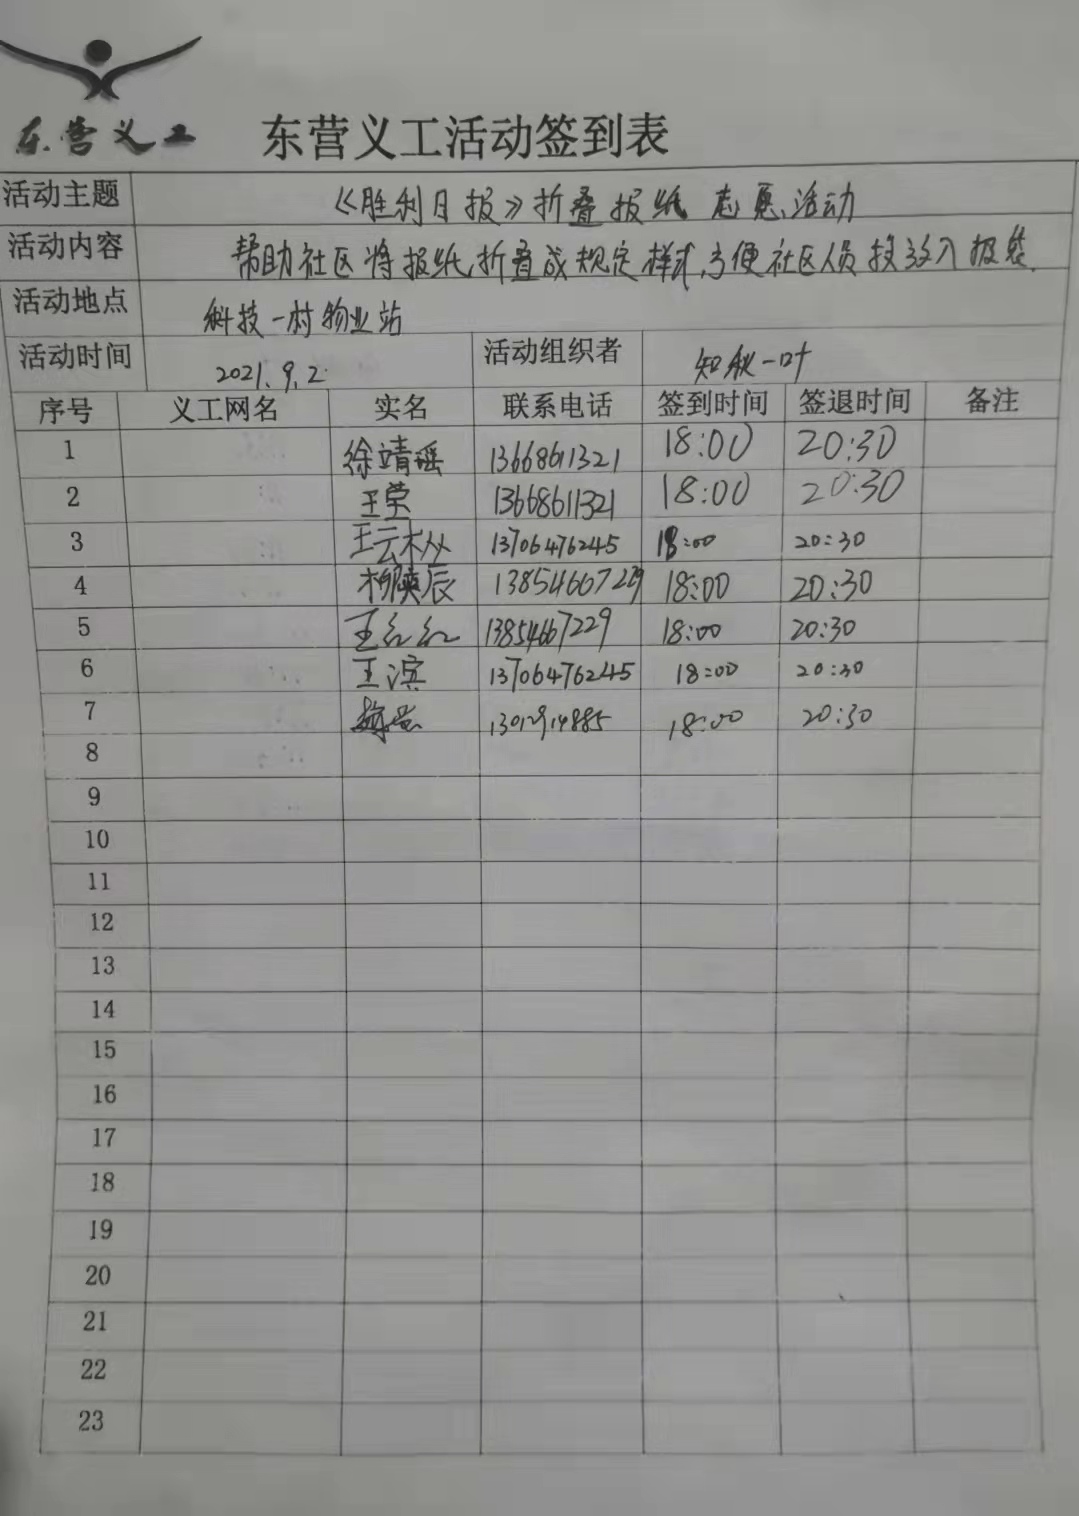 东营义工 东营义工活动签到表
活动主题 《胜利日报》折叠报纸 志愿活动
活动内容 帮助社区将报纸折叠成规定样式,方便社区人员投放入报袋.
活动地点 科技一村物业站
活动时间 2021.9.2. 活动组织者 知秋一叶
序号 义工网名 实名 联系电话 签到时间 签退时间 备注
1 徐靖瑶 13668611321 18:00 20:30
2 王莹 13668611321 18:00 20:30
3 王云 13706476245 18:00 20:30
4 柳 辰 13854667229 18:00 20:30
5 王红红 13854667229 18:00 20:30
6 王滨 13706476245 18:00 20:30
7 18:00 20:30
8
9
10
11
12
13
14
15
16
17
18
19
20
21
22
23